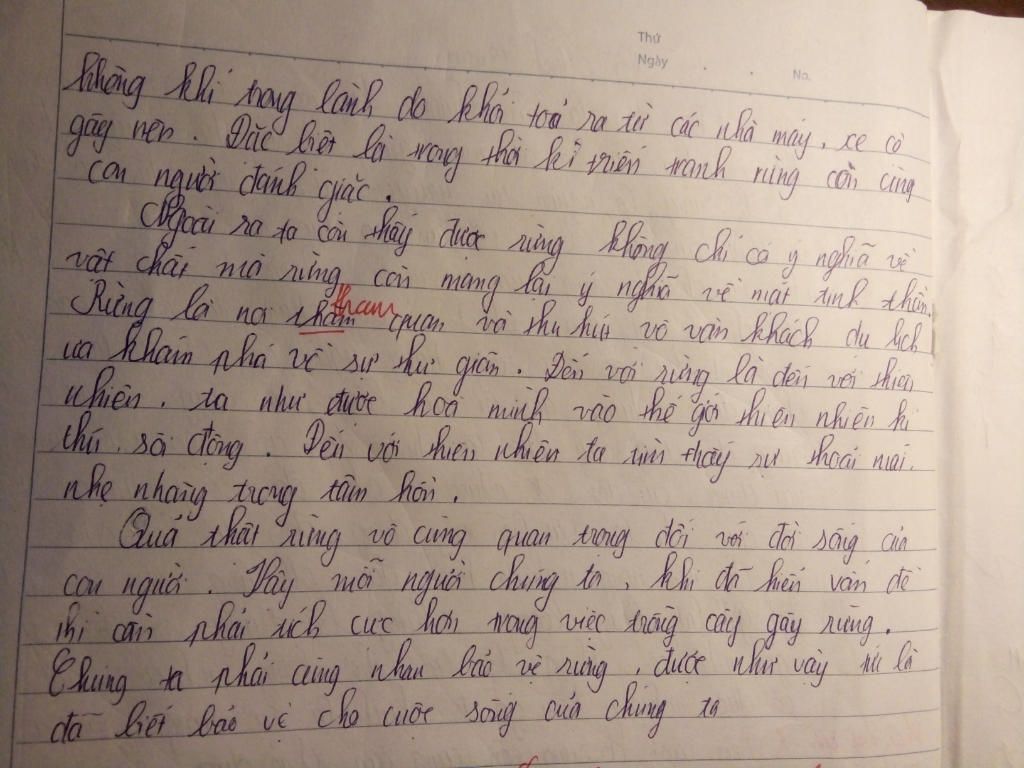 Thứ
Ngày No.
không khí trong lành do khói toả ra từ các nhà máy, xe cò
gây nên. Đặc biệt là trong thời kì triến tranh rừng còn cùng
con người đánh giặc.
Ngoài ra ta còn thấy được rừng không chỉ có ý nghĩa về
vật chất mà rừng còn mang lại ý nghĩa về mặt tinh thần.
tham
Rừng là nơi thăm quan và thu hút vô vàn khách du lịch
ưa khám phá về sự thư giãn. Đến với rừng là đến với thiên
nhiên, ta như được hoà mình vào thế giới thiên nhiên kì
thú, sôi động. Đến với thiên nhiên ta tìm thấy sự thoải mái,
nhẹ nhàng trong tâm hồn.
Quả thật rừng vô cùng quan trọng đối với đời sống của
con người. Vậy mỗi người chúng ta, khi đã hiến vấn đề
thì cần phải tích cực hơn trong việc trồng cây gây rừng.
Chúng ta phải cùng nhau bảo vệ rừng, được như vậy tức là
đã biết bảo vệ cho cuộc sống của chúng ta